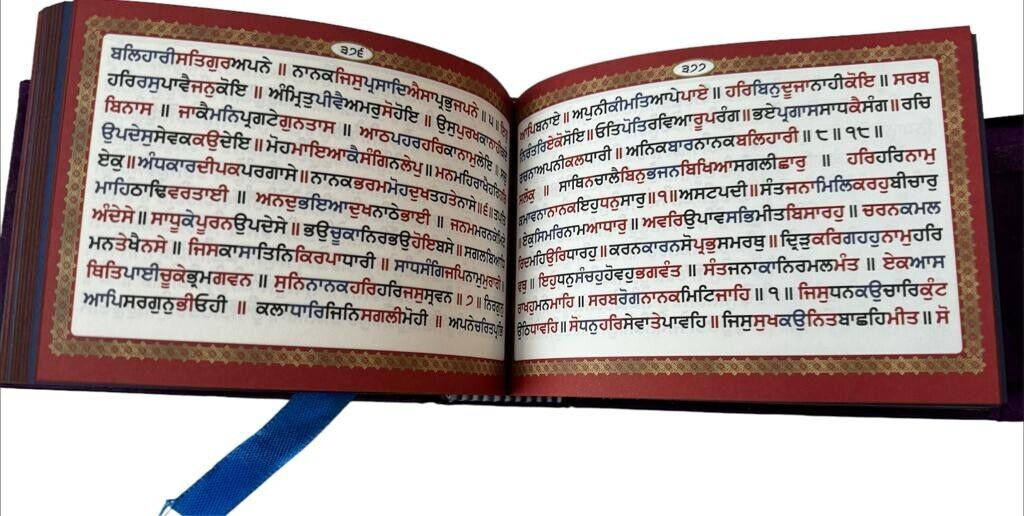 ੩੭੬
ਬਲਿਹਾਰੀਸਤਿਗੁਰਅਪਨੇ ॥ ਨਾਨਕਜਿਸੁਪ੍ਰਸਾਦਿਐਸਾਪ੍ਰਭੁਜਪਨੇ ॥੫॥
ਹਰਿਰਸੁਪਾਵੈਜਨੁਕੋਇ ॥ ਅੰਮ੍ਰਿਤੁਪੀਵੈਅਮਰੁਸੋਹੋਇ ॥ ਉਸੁਪੁਰਖਕਾਨਾਹੀਕਦੇ
ਬਿਨਾਸ ॥ ਜਾਕੈਮਨਿਪ੍ਰਗਟੇਗੁਨਤਾਸ ॥ ਆਠਪਹਰਹਰਿਕਾਨਾਮੁਲੇਇ ॥ ਸਚੁ
ਉਪਦੇਸੁਸੇਵਕਕਉਦੇਇ ॥ ਮੋਹਮਾਇਆਕੈਸੰਗਿਨਲੇਪੁ ॥ ਮਨਮਹਿਰਾਖੈਹਰਿਹਰਿ
ਏਕੁ ॥ ਅੰਧਕਾਰਦੀਪਕਪਰਗਾਸੇ ॥ ਨਾਨਕਭਰਮਮੋਹਦੁਖਤਹਤੇਨਾਸੇ ॥੬॥ ਤਪਤਿ
ਮਾਹਿਠਾਢਿਵਰਤਾਈ ॥ ਅਨਦੁਭਇਆਦੁਖਨਾਠੇਭਾਈ ॥ ਜਨਮਮਰਨਕੇਮਿਟੇ
ਅੰਦੇਸੇ ॥ ਸਾਧੂਕੇਪੂਰਨਉਪਦੇਸੇ ॥ ਭਉਚੂਕਾਨਿਰਭਉਹੋਇਬਸੇ ॥ ਸਗਲਬਿਆਧਿ
ਮਨਤੇਖੈਨਸੇ ॥ ਜਿਸਕਾਸਾਤਿਨਿਕਿਰਪਾਧਾਰੀ ॥ ਸਾਧਸੰਗਿਜਪਿਨਾਮੁਮੁਰਾਰੀ ॥
ਥਿਤਿਪਾਈਚੂਕੇਭ੍ਰਮਗਵਨ ॥ ਸੁਨਿਨਾਨਕਹਰਿਹਰਿਜਸੁਸ੍ਰਵਨ ॥੭॥ ਨਿਰਗੁਨੁ
ਆਪਿਸਰਗੁਨੁਭੀਓਹੀ ॥ ਕਲਾਧਾਰਿਜਿਨਿਸਗਲੀਮੋਹੀ ॥ ਅਪਨੇਚਰਿਤਪ੍ਰਭਿ
੩੭੭
ਆਪਿਬਨਾਏ ॥ ਅਪੁਨੀਕੀਮਤਿਆਪੇਪਾਏ ॥ ਹਰਿਬਿਨੁਦੂਜਾਨਾਹੀਕੋਇ ॥ ਸਰਬ
ਨਿਰੰਤਰਿਏਕੋਸੋਇ ॥ ਓਤਿਪੋਤਿਰਵਿਆਰੂਪਰੰਗ ॥ ਭਏਪ੍ਰਗਾਸਸਾਧਕੈਸੰਗ ॥ ਰਚਿ
ਰਚਨਾਅਪਨੀਕਲਧਾਰੀ ॥ ਅਨਿਕਬਾਰਨਾਨਕਬਲਿਹਾਰੀ ॥੮॥੧੮॥
ਸਲੋਕੁ ॥ ਸਾਥਿਨਚਾਲੈਬਿਨੁਭਜਨਬਿਖਿਆਸਗਲੀਛਾਰੁ ॥ ਹਰਿਹਰਿਨਾਮੁ
ਕਮਾਵਨਾਨਾਨਕਇਹੁਧਨੁਸਾਰੁ ॥੧॥ ਅਸਟਪਦੀ ॥ ਸੰਤਜਨਾਮਿਲਿਕਰਹੁਬੀਚਾਰੁ
॥ ਏਕੁਸਿਮਰਿਨਾਮਆਧਾਰੁ ॥ ਅਵਰਿਉਪਾਵਸਭਿਮੀਤਬਿਸਾਰਹੁ ॥ ਚਰਨਕਮਲ
ਰਿਦਮਹਿਉਰਿਧਾਰਹੁ ॥ ਕਰਨਕਾਰਨਸੋਪ੍ਰਭੁਸਮਰਥੁ ॥ ਦ੍ਰਿੜੁਕਰਿਗਹਹੁਨਾਮੁਹਰਿ
ਵਥੁ ॥ ਇਹੁਧਨੁਸੰਚਹੁਹੋਵਹੁਭਗਵੰਤ ॥ ਸੰਤਜਨਾਕਾਨਿਰਮਲਮੰਤ ॥ ਏਕਆਸ
ਰਾਖਹੁਮਨਮਾਹਿ ॥ ਸਰਬਰੋਗਨਾਨਕਮਿਟਿਜਾਹਿ ॥੧॥ ਜਿਸੁਧਨਕਉਚਾਰਿਕੁੰਟ
ਉਠਿਧਾਵਹਿ ॥ ਸੋਧਨੁਹਰਿਸੇਵਾਤੇਪਾਵਹਿ ॥ ਜਿਸੁਸੁਖਕਉਨਿਤਬਾਛਹਿਮੀਤ ॥ ਸੋ